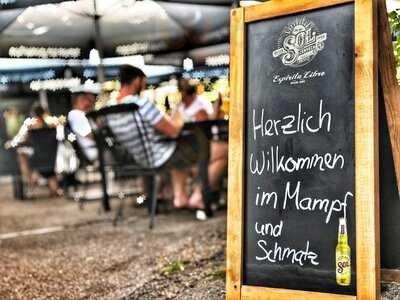 SOL
Espíritu Libre
Herzlich
Willkommen
im Mampf
und
Schmatz
SOL